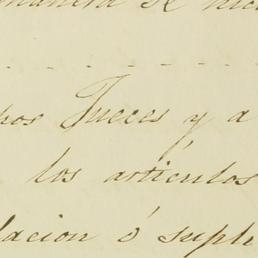 manera se hic
hos Jueces y a
los artículos
lacion ó suplí